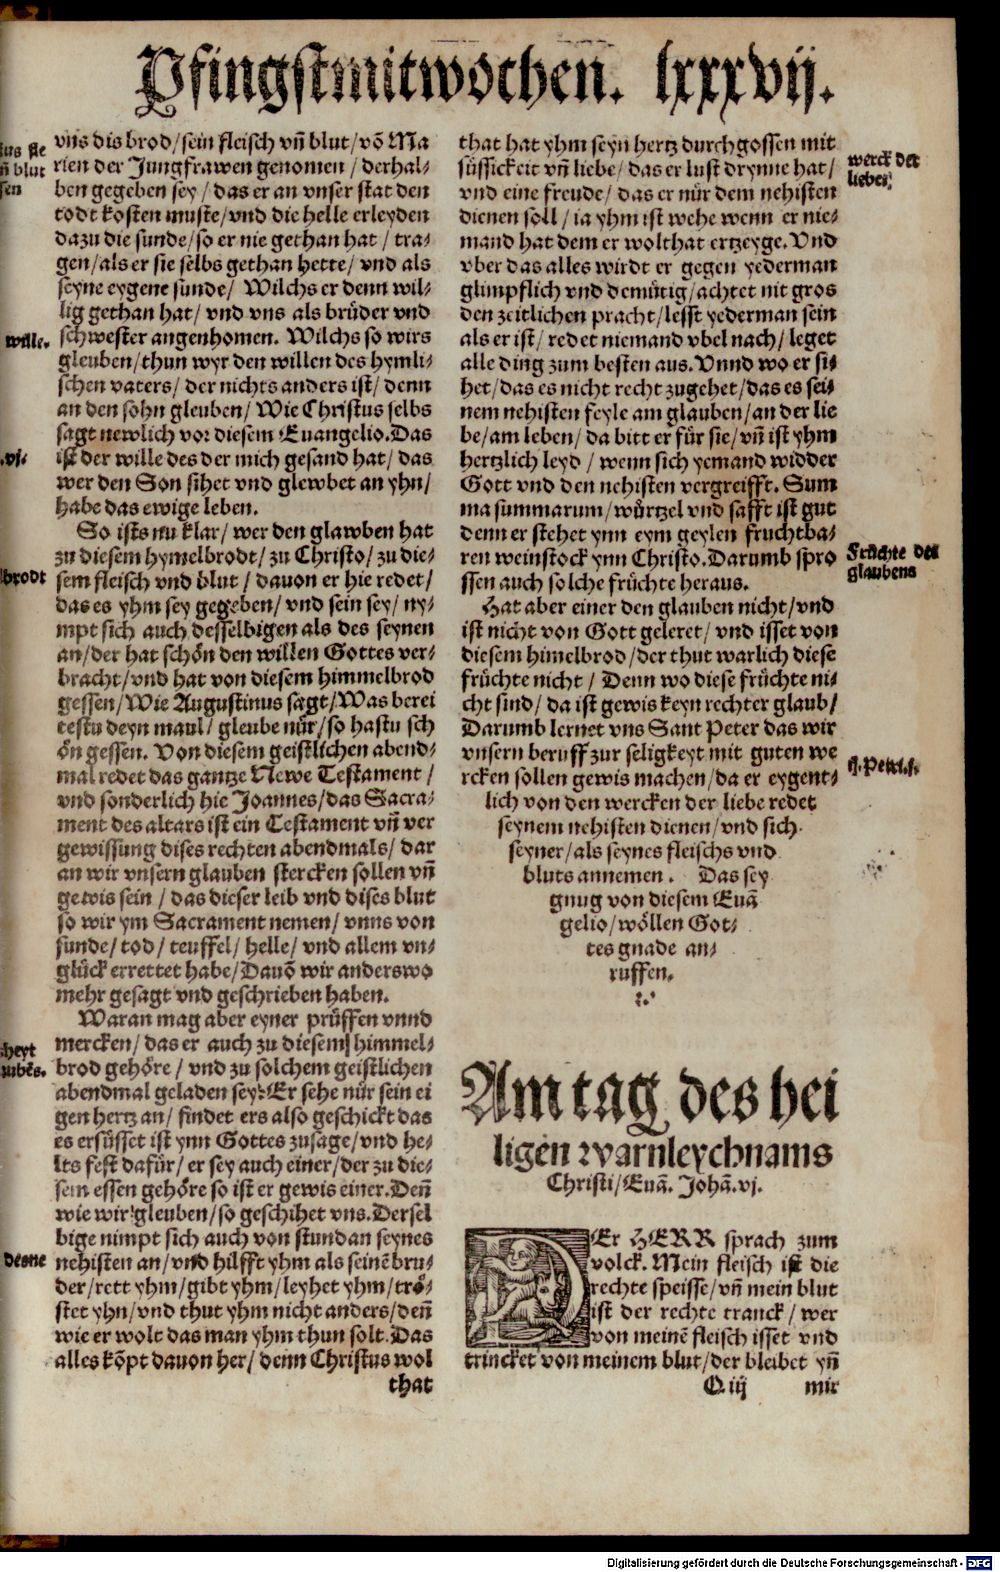 Pfingstmitwochen. lxxxvij.
vns dis brod/sein fleisch vn̄ blut/vō Ma
rien der Jungfrawen genomen/derhal⸗
ben gegeben sey/das er an vnser stat den
todt kosten muste/vnd die helle erleyden
dazu die sunde/so er nie gethan hat/tra⸗
gen/als er sie selbs gethan hette/vnd als
seyne eygene sunde/ Wilchs er denn wil⸗
lig gethan hat/vnd vns als brüder vnd
schwester angenhomen. Wilchs so wirs
gleuben/thun wyr den willen des hymli⸗
schen vaters/der nichts anders ist/denn
an den sohn gleuben/Wie Christus selbs
sagt newlich vor diesem Euangelio. Das
ist der wille des der mich gesand hat/das
wer den Son sihet vnd glewbet an yhn/
habe das ewige leben.
So ists nu klar/wer den glawben hat
zu diesem hymelbrodt/zu Christo/zu die⸗
sem fleisch vnd blut/dauon er hie redet/
das es yhm sey gegeben/vnd sein sey/ny⸗
mpt sich auch desselbigen als des seynen
an/der hat schön den willen Gottes ver⸗
bracht/vnd hat von diesem himmelbrod
gessen/Wie Augustinus sagt/Was berei
testu deyn maul/gleube nür/so hastu sch
ön gessen. Von diesem geistlichen abend⸗
mal redet das gantze Newe Testament/
vnd sonderlich hie Joannes/das Sacra⸗
ment des altars ist ein Testament vn̄ ver
gewissung dises rechten abendmals/dar
an wir vnsern glauben stercken sollen vn̄
gewis sein/das dieser leib vnd dises blut
so wir ym Sacrament nemen/vnns von
sunde/tod/teuffel/helle/vnd allem vn⸗
glück errettet habe/Dauō wir anderswo
mehr gesagt vnd geschrieben haben.
Waran mag aber eyner prüffen vnnd
mercken/das er auch zu diesem himmel⸗
brod gehöre/vnd zu solchem geistlichen
abendmal geladen sey? Er sehe nür sein ei
gen hertz an/findet ers also geschickt das
es ersüsset ist ynn Gottes zusage/vnd he⸗
lts fest dafür/er sey auch einer/der zu die⸗
sem essen gehöre so ist er gewis einer. Den̄
wie wir gleuben/so geschihet vns. Dersel
bige nimpt sich auch von stundan seynes
nehisten an/vnd hilfft yhm als seinē bru⸗
der/rett yhm/gibt yhm/leyhet yhm/trö⸗
stet yhn/vnd thut yhm nicht anders/den̄
wie er wolt das man yhm thun solt. Das
alles kōpt dauon her/denn Christus wol
that
wille.
.vj.
brodt
that hat yhm seyn hertz durchgossen mit
süssickeit vn̄ liebe/das er lust drynne hat/
vnd eine freude/das er nür dem nehisten
dienen soll/ia yhm ist wehe wenn er nie⸗
mand hat dem er wolthat ertzeyge. Vnd
vber das alles wirdt er gegen yederman
glimpflich vnd demütig/achtet nit gros
den zeitlichen pracht/lesst yederman sein
als er ist/redet niemand vbel nach/leget
alle ding zum besten aus. Vnnd wo er si⸗
het/das es nicht recht zugehet/das es sei⸗
nem nehisten feyle am glauben/an der lie
be/am leben/da bitt er für sie/vn̄ ist yhm
hertzlich leyd/wenn sich yemand widder
Gott vnd den nehisten vergreifft. Sum
ma summarum/würtzel vnd safft ist gut
denn er stehet ynn eym geylen fruchtba⸗
ren weinstock ynn Christo. Darumb spro
ssen auch solche früchte heraus.
Hat aber einer den glauben nicht/vnd
ist nicht von Gott geleret/vnd isset von
diesem himelbrod/der thut warlich diese
früchte nicht/Denn wo diese früchte ni⸗
cht sind/da ist gewis keyn rechter glaub/
Darumb lernet vns Sant Peter das wir
vnsern beruff zur seligkeyt mit guten we
rcken sollen gewis machen/da er eygent⸗
lich von den wercken der liebe redet
seynem nehisten dienen/vnd sich
seyner/als seynes fleischs vnd
bluts annemen. Das sey
gnug von diesem Euā
gelio/wöllen Got⸗
tes gnade an⸗
ruffen.
werck der
liebe.
Früchte des
glaubens
Am tag des hei
ligen warnleychnams
Christi/Euā. Johā. vj.
DEr HERR sprach zum
volck. Mein fleisch ist die
rechte speisse/vn̄ mein blut
ist der rechte tranck/wer
von meinē fleisch isset vnd
trincket von meinem blut/der bleibet yn̄
Q iij mir
Digitalisierung gefördert durch die Deutsche Forschungsgemeinschaft - DFG